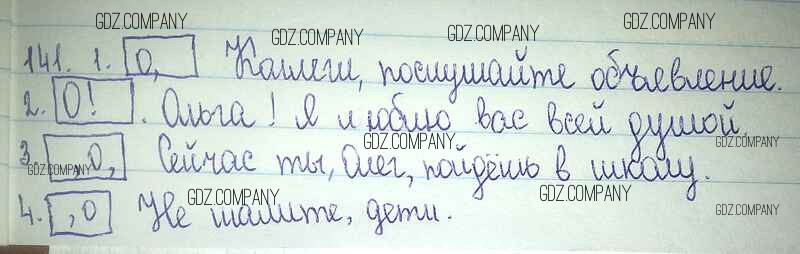 141. 1. О, Коллеги, послушайте объявление.
2. О! . Ольга! Я люблю вас всей душой.
3. , О, Сейчас ты, Олег, пойдёшь в школу.
4. , О Не шалите, дети.
GDZ.COMPANY GDZ.COMPANY GDZ.COMPANY GDZ.COMPANY
GDZ.COMPANY GDZ.COMPANY
GDZ.COMPANY
GDZ.COMPANY GDZ.COMPANY GDZ.COMPANY